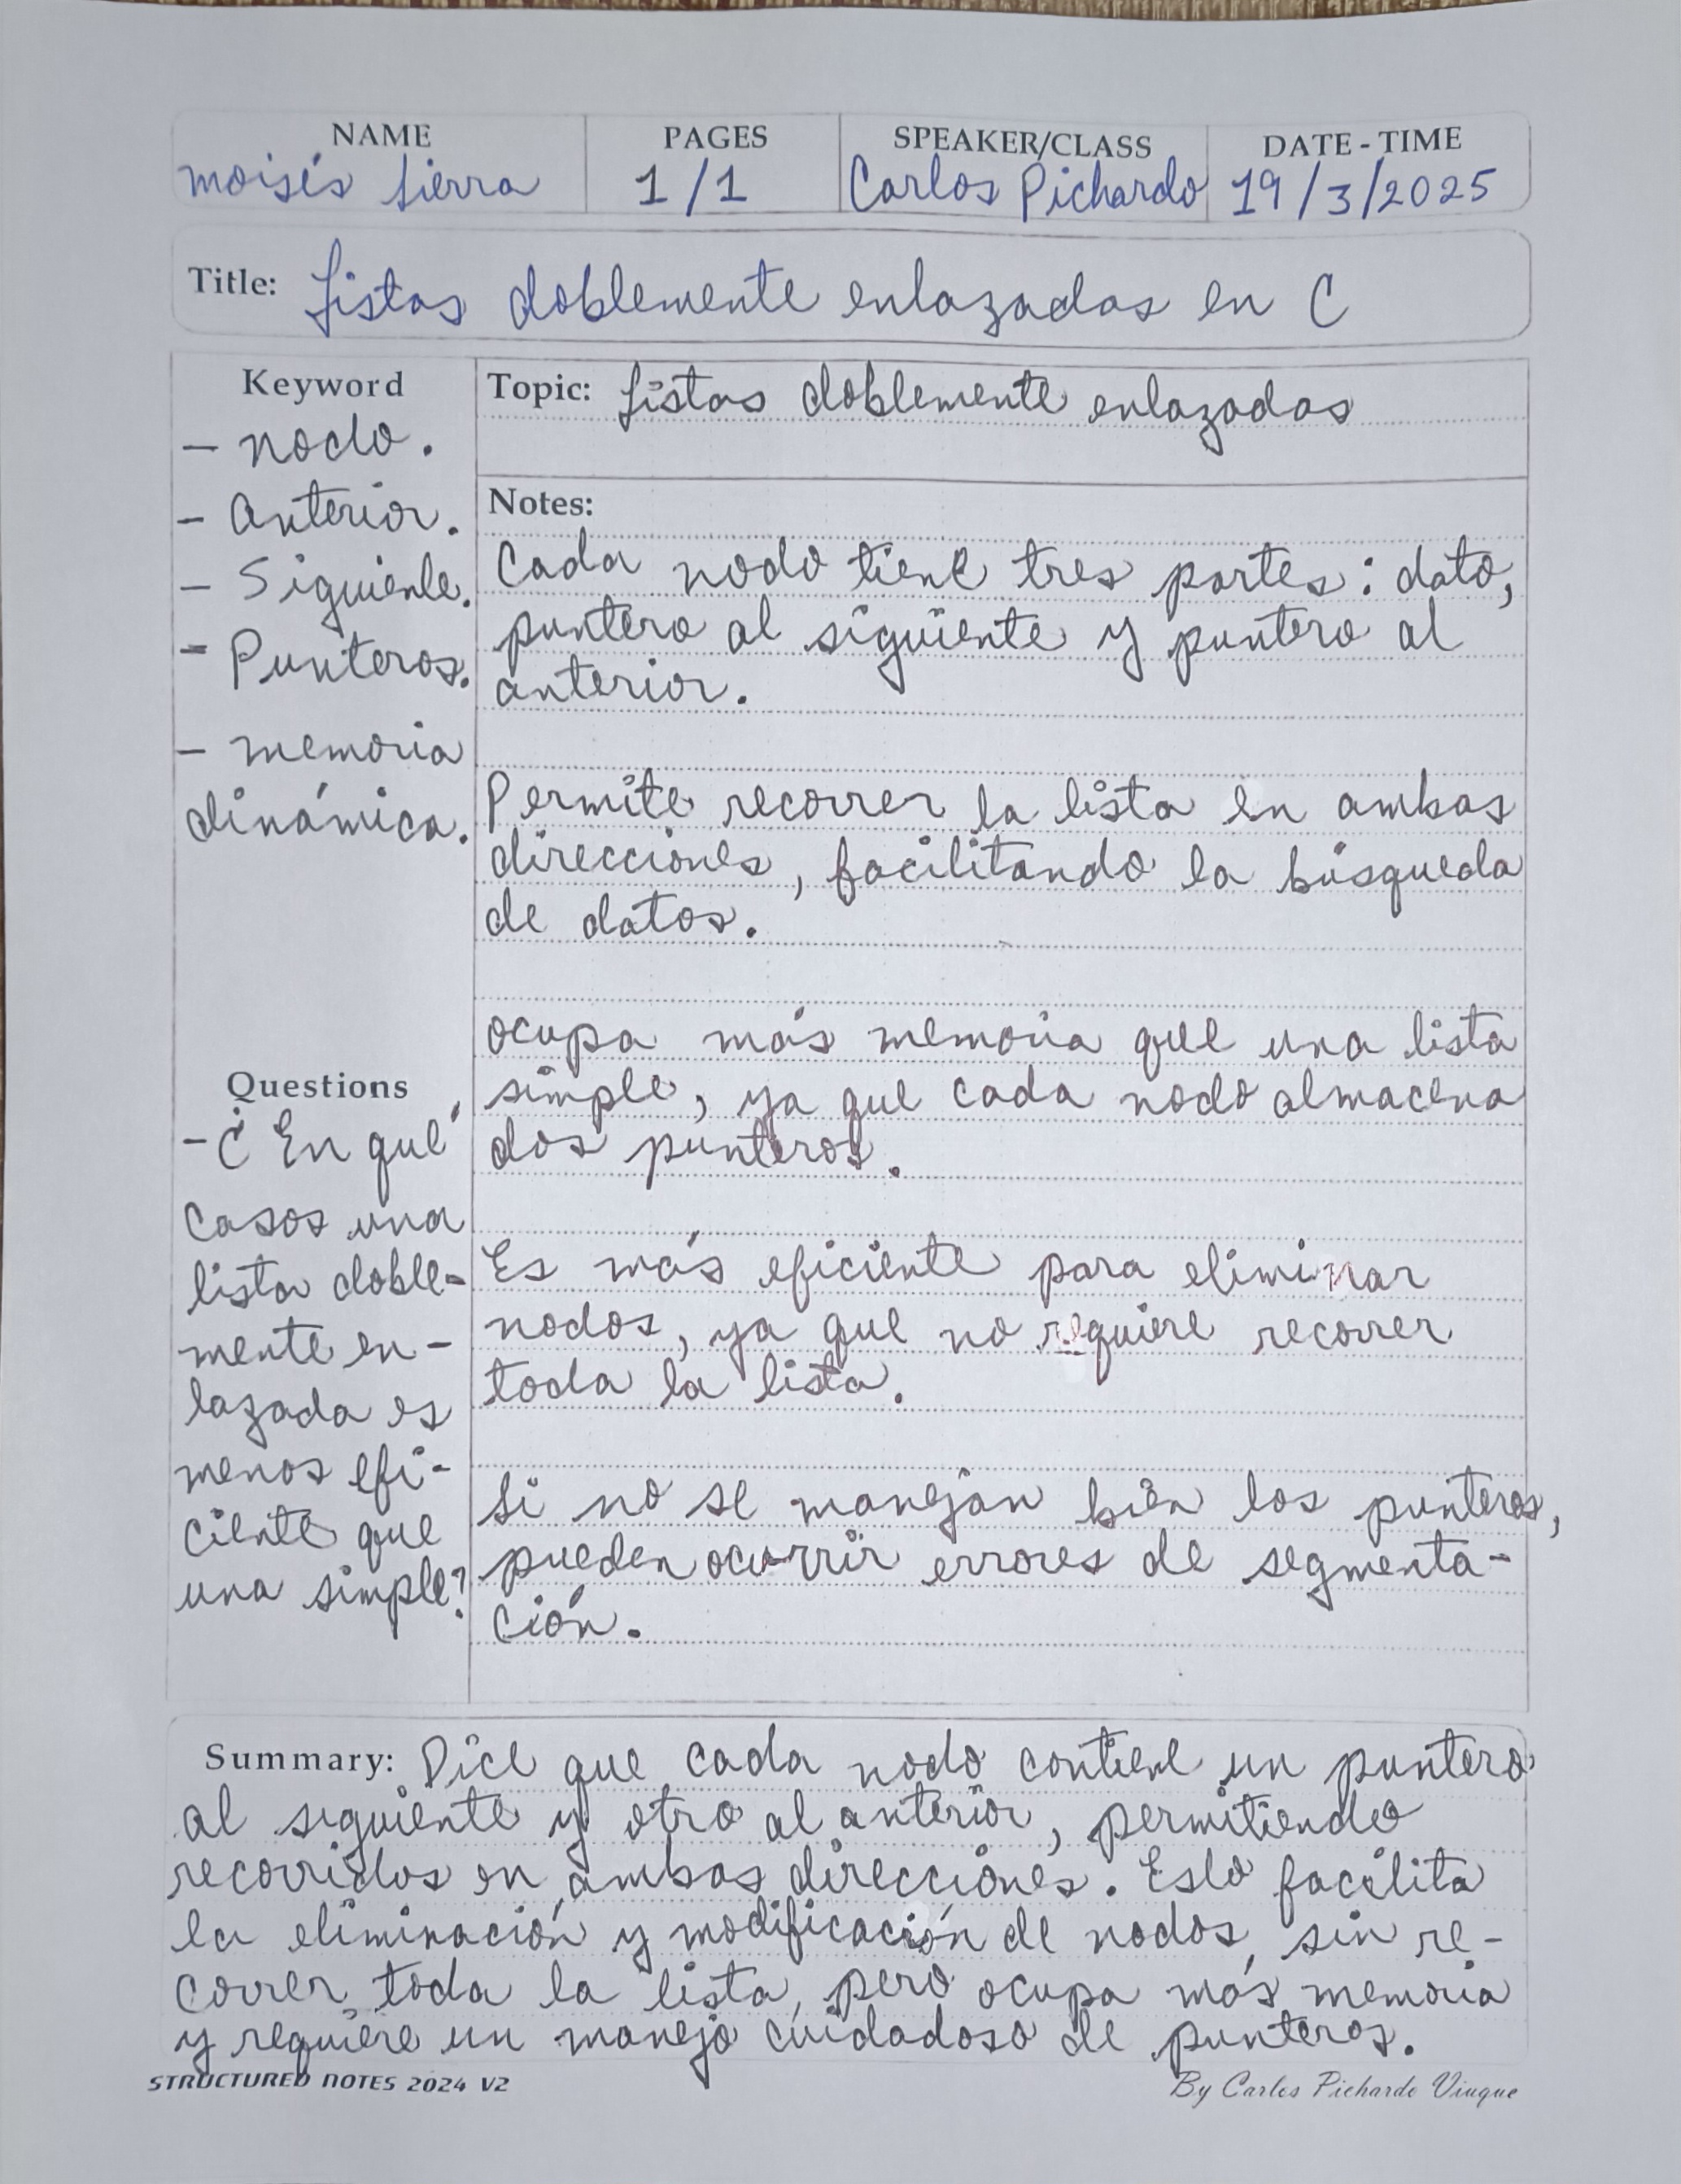 NAME PAGES SPEAKER/CLASS DATE-TIME
moisés sierra 1/1 Carlos Pichardo 19/3/2025
Title: Listas doblemente enlazadas en C
Keyword
- nodo.
- Anterior.
- Siguiente.
- Punteros.
- memoria
dinámica.
Questions
- ¿En qué
casos una
lista doble-
mente en-
lazada es
menos efi-
ciente que
una simple?
Topic: Listas doblemente enlazadas
Notes:
Cada nodo tiene tres partes: dato,
puntero al siguiente y puntero al
anterior.
Permite recorrer la lista en ambas
direcciones, facilitando la búsqueda
de datos.
ocupa más memoria que una lista
simple, ya que cada nodo almacena
dos punteros.
Es más eficiente para eliminar
nodos, ya que no requiere recorrer
toda la lista.
Si no se manejan bien los punteros,
pueden ocurrir errores de segmenta-
ción.
Summary: Dice que cada nodo contiene un puntero
al siguiente y otro al anterior, permitiendo
recorridos en ambas direcciones. Esto facilita
la eliminación y modificación de nodos, sin re-
correr toda la lista, pero ocupa más memoria
y requiere un manejo cuidadoso de punteros.
STRUCTURED NOTES 2024 V2 By Carlos Pichardo Viuque